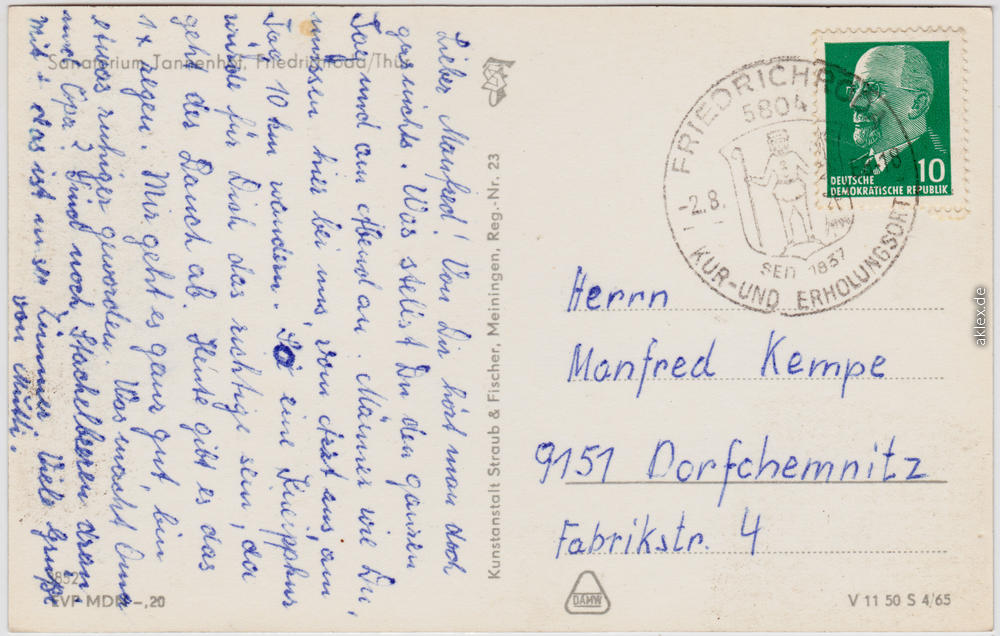 Sanatorium Tannenhof, Friedrichroda/Thür.
Lieber Manfred! Von Dir hört man doch
gar nichts. Was stellst Du den ganzen
Tag und am Abend an. Männer wie Du,
müssen hier bei uns, vom Arzt aus, am
Tag 10 km wandern. So eine Kneippkur
würde für Dich das richtige sein, da
geht der Bauch ab. Heute gibt es das
1x Regen. Mir geht es ganz gut, bin
etwas ruhiger geworden. Was macht Oma
und Opa? Sind noch Stachelbeeren dran.
Mit x das ist unser Zimmer. Viele Grüße
von Mutti.
EVP MDN -,20
Kunstanstalt Straub & Fischer, Meiningen, Reg.-Nr. 23
FRIEDRICHRODA
5804
-2.8.
SEIT 1837
KUR-UND ERHOLUNGSORT
10
DEUTSCHE
DEMOKRATISCHE REPUBLIK
Herrn
Manfred Kempe
9151 Dorfchemnitz
Fabrikstr. 4
DAMW
V 11 50 S 4/65
aklex.de